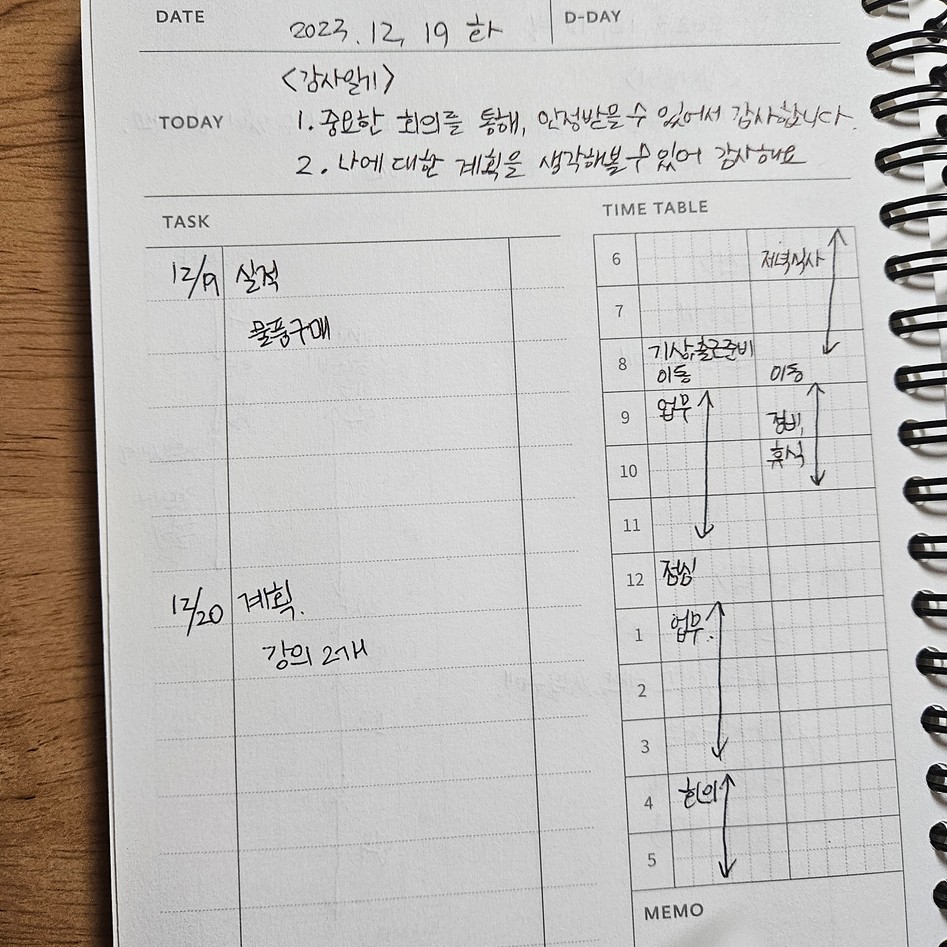 DATE 2023. 12. 19 화 D-DAY
<감사일기>
TODAY 1. 중요한 회의를 통해, 인정받을 수 있어서 감사합니다.
2. 나에 대한 계획을 생각해볼 수 있어 감사해요
TASK
12/19 실적
물품구매
12/20 계획.
강의 2개
TIME TABLE
6 저녁식사
7
8 기상,출근준비
이동 이동
9 업무 정비,
10 휴식
11
12 점심
1 업무.
2
3
4 회의
5
MEMO